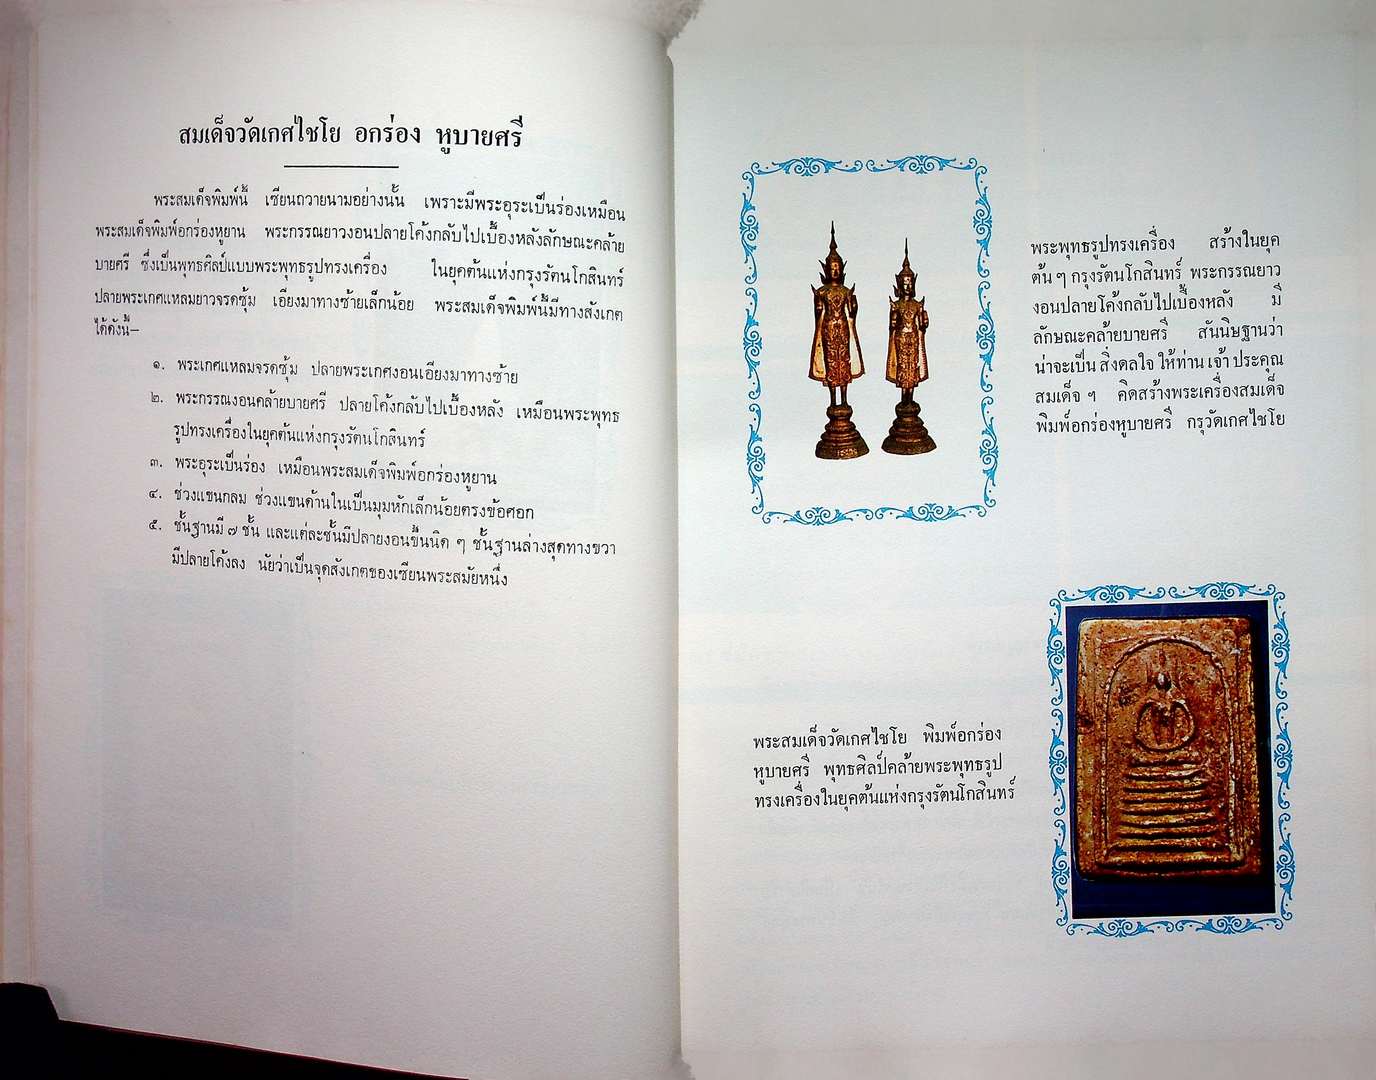 สมเด็จวัดเกศไชโย อกร่อง หูบายศรี
พระสมเด็จพิมพ์นี้ เซียนถวายนามอย่างนั้น เพราะมีพระอุระเป็นร่องเหมือน
พระสมเด็จพิมพ์อกร่องหูยาน พระกรรณยาวงอนปลายโค้งกลับไปเบื้องหลังลักษณะคล้าย
บายศรี ซึ่งเป็นพุทธศิลป์แบบพระพุทธรูปทรงเครื่อง ในยุคต้นแห่งกรุงรัตนโกสินทร์
ปลายพระเกศแหลมยาวจรดซุ้ม เอียงมาทางซ้ายเล็กน้อย พระสมเด็จพิมพ์นี้มีทางสังเกต
ได้ดังนี้–
๑. พระเกศแหลมจรดซุ้ม ปลายพระเกศงอนเอียงมาทางซ้าย
๒. พระกรรณงอนคล้ายบายศรี ปลายโค้งกลับไปเบื้องหลัง เหมือนพระพุทธ
รูปทรงเครื่องในยุคต้นแห่งกรุงรัตนโกสินทร์
๓. พระอุระเป็นร่อง เหมือนพระสมเด็จพิมพ์อกร่องหูยาน
๔. ช่วงแขนกลม ช่วงแขนด้านในเป็นมุมหักเล็กน้อยตรงข้อศอก
๕. ชั้นฐานมี ๗ ชั้น และแต่ละชั้นมีปลายงอนขึ้นนิด ๆ ชั้นฐานล่างสุดทางขวา
มีปลายโค้งลง นัยว่าเป็นจุดสังเกตของเซียนพระสมัยหนึ่ง
พระพุทธรูปทรงเครื่อง สร้างในยุค
ต้น ๆ กรุงรัตนโกสินทร์ พระกรรณยาว
งอนปลายโค้งกลับไปเบื้องหลัง มี
ลักษณะคล้ายบายศรี สันนิษฐานว่า
น่าจะเป็น สิ่งดลใจ ให้ท่าน เจ้า ประคุณ
สมเด็จ ฯ คิดสร้างพระเครื่องสมเด็จ
พิมพ์อกร่องหูบายศรี กรุวัดเกศไชโย
พระสมเด็จวัดเกศไชโย พิมพ์อกร่อง
หูบายศรี พุทธศิลป์คล้ายพระพุทธรูป
ทรงเครื่องในยุคต้นแห่งกรุงรัตนโกสินทร์